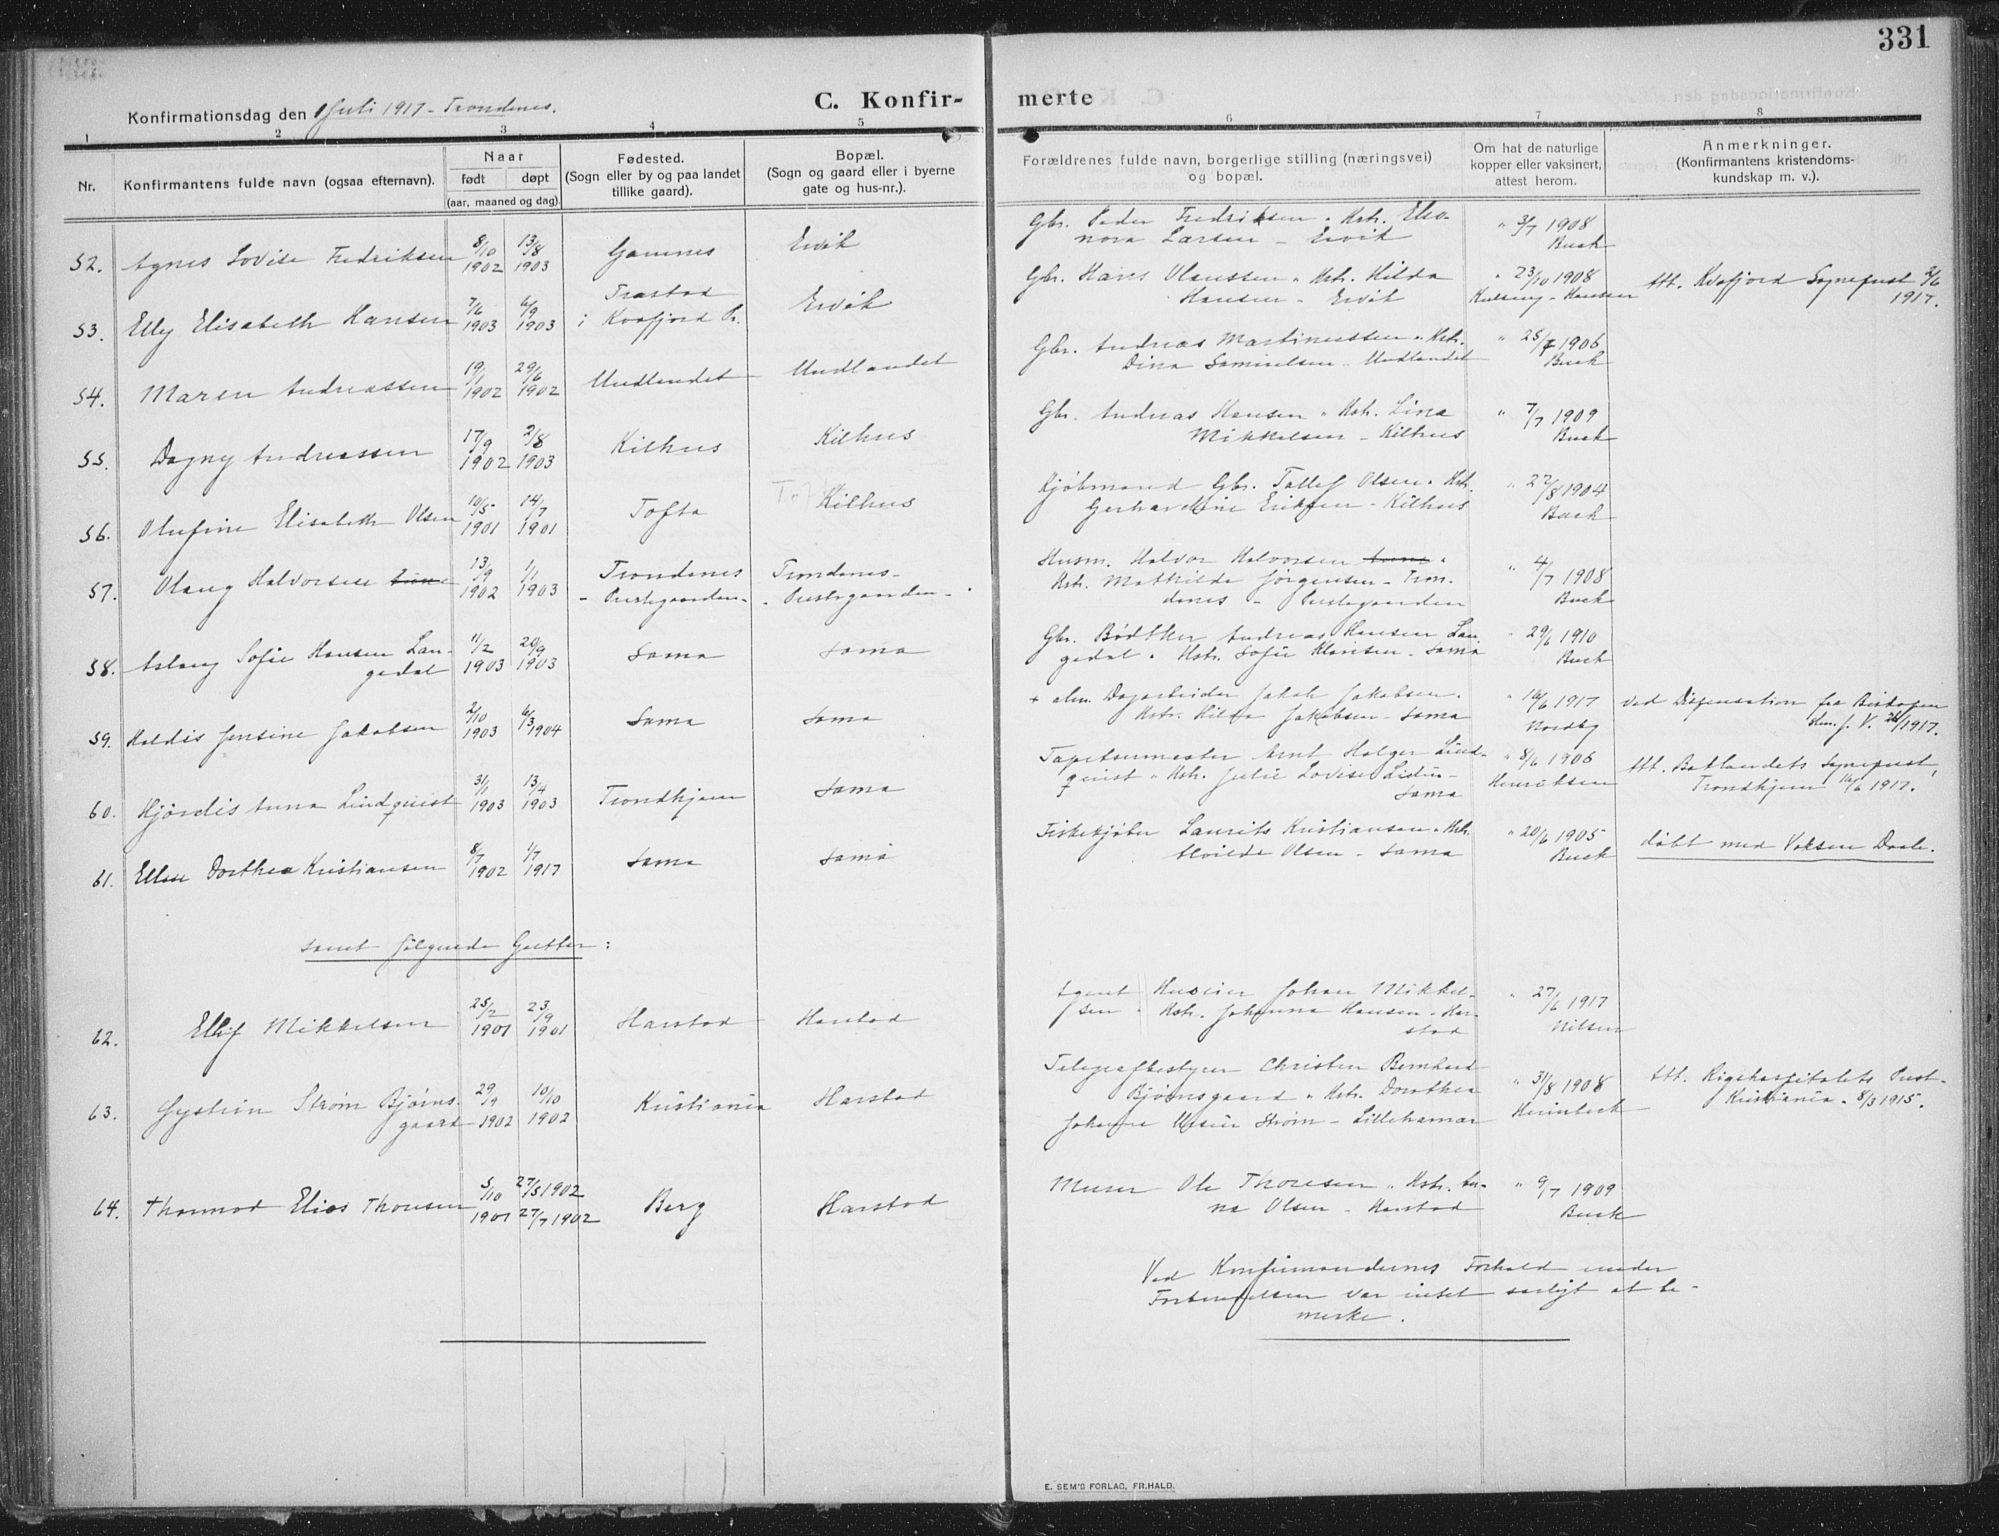 331
Konfirmationsdag den 1 Juli 1917 - Trondenes.
C. Konfir-
merte
1 2 3 4 5 6 7 8
Nr.
Konfirmantens fulde navn (ogsaa efternavn).
Naar
født døpt
(aar, maaned og dag).
Fødested.
(Sogn eller by og paa landet
tillike gaard).
Bopæl.
(Sogn og gaard eller i byerne
gate og hus-nr.).
Forældrenes fulde navn, borgerlige stilling (næringsvei)
og bopæl.
Om hat de naturlige
kopper eller vaksinert,
attest herom.
Anmerkninger.
(Konfirmantens kristendoms-
kundskap m. v.).
52. Agnes Lovise Fredriksen 8/10 1902 13/8 1903 Gamnes Ervik
Gbr. Peder Fredriksen & Hstr. Eleo-
nora Larsen - Ervik
" 3/7 1908
Buck
53. Elly Elisabeth Hansen 7/6 1903 6/9 1903
Trastad
i Kvæfjord Pr.
Ervik
Gbr. Hans Olaussen & Hstr. Hilda
Hansen - Ervik
" 23/10 1908
Hansen
Att. Kvæfjord Sognepræst 2/6
1917.
54. Maren Andreassen 19/1 1902 29/6 1902 Undlandet Undlandet
Gbr. Andreas Martinussen & Hstr.
Dina Samuelsen - Undlandet
" 25/7 1906
Buck
55. Dagny Andreassen 17/9 1902 2/8 1903 Kilhus Kilhus
Gbr. Andreas Hansen & Hstr. Lina
Mikkelsen - Kilhus
" 7/7 1909
Buck
56. Olufine Elisabeth Olsen 10/5 1901 14/7 1901 Tofta Kilhus
Kjøbmand Gbr. Tollef Olsen & Hstr.
Gerhardine Eriksen - Kilhus
" 22/8 1904
Buck
57. Olaug Halvorsen 13/9 1902 1/1 1903
Trondenes
- Prestegaarden -
Trondenes-
- Prestegaarden -
Husm. Halvor Halvorsen &
Hstr. Mathilde Jørgensen - Tron-
denes - Prestegaarden
" 4/7 1908
Buck
58. Aslaug Sofie Hansen Lan-
gedal 11/2 1903 20/9 1903 Sama Sama
Gbr. Bødtker Andreas Hansen Lan-
gedal & Hstr. Sofie Klausen - Sama
" 29/6 1910
Buck
59. Haldis Jensine Jakobsen 2/10 1903 6/3 1904 Sama Sama
+ alm. Dagarbeider Jakob Jakobsen &
Hstr. Hilda Jakobsen - Sama
" 16/6 1917
Nordby
Ved Dispensation fra Biskopen
26/6 1917.
60. Hjørdis Anna Lindquist 31/1 1903 13/4 1903 Trondhjem Sama
Tapetsermester Arnt Holger Lind-
quist & Hstr. Julie Lovise
Sama
" 8/6 1906
Henriksen
Att. Baklandets Sognepræst,
Trondhjem 16/6 1917.
61. Ellen Dorthea Kristiansen 8/7 1902 1/7 1917 Sama Sama
Fiskekjøber Laurits Kristiansen & Hstr.
Alvilde Olsen - Sama
" 20/6 1905
Buck
døbt med Voksen Daab.
samt følgende Gutter:
62. Ellif Mikkelsen 25/2 1901 23/9 1901 Harstad Harstad
Agent Huseier Johan Mikkel-
sen & Hstr. Johanna Hansen - Har-
stad
" 27/6 1917
Nilsen
63. Gystein Strøm Bjørns-
gaard 29/9 1902 10/10 1902 Kristiania Harstad
Telegrafbestyrer Christen Bernhard
Bjørnsgaard & Hstr. Dorothea
Johanne Strøm - Lillehamar
" 31/8 1908
Att. Rigshospitalets Prest
Kristiania - 8/3 1915.
64. Thormod Elias Thoresen 5/10 1901 27/5 1902
27/7 1902
Berg Harstad
Murer Ole Thoresen & Hstr. An-
na Olsen - Harstad
" 9/7 1909
Buck
Ved Konfirmandernes Forhold under
Forberedelsen var intet særligt at be-
merke.
E. SEM'S FORLAG, FR.HALD.